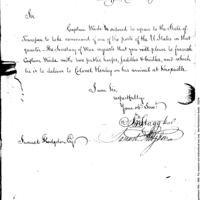 Sir
Captain Wade is ordered to repair to the State of
Tennessee to take command of one of the posts of the U. States in that
quarter — The Secretary of War requests that you will please to furnish
Captain Wade, with two public horses, saddles & bridles, and which
he is to deliver to Colonel Henley on his arrival at Knoxville.
I am Sir,
respectfully
Your Ob. Serv.
Jno Stagg
Samuel Hodgdon Esq.
Samuel Hodgdon